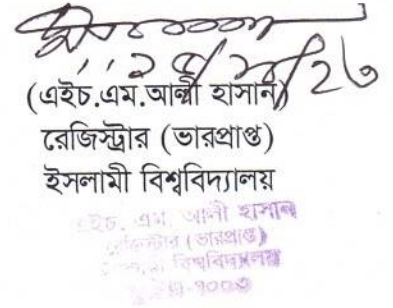 (এইচ.এম.আলী হাসান)
রেজিস্ট্রার (ভারপ্রাপ্ত)
ইসলামী বিশ্ববিদ্যালয়
এইচ. এম. আলী হাসান
রেজিস্ট্রার (ভারপ্রাপ্ত)
ইসলামী বিশ্ববিদ্যালয়